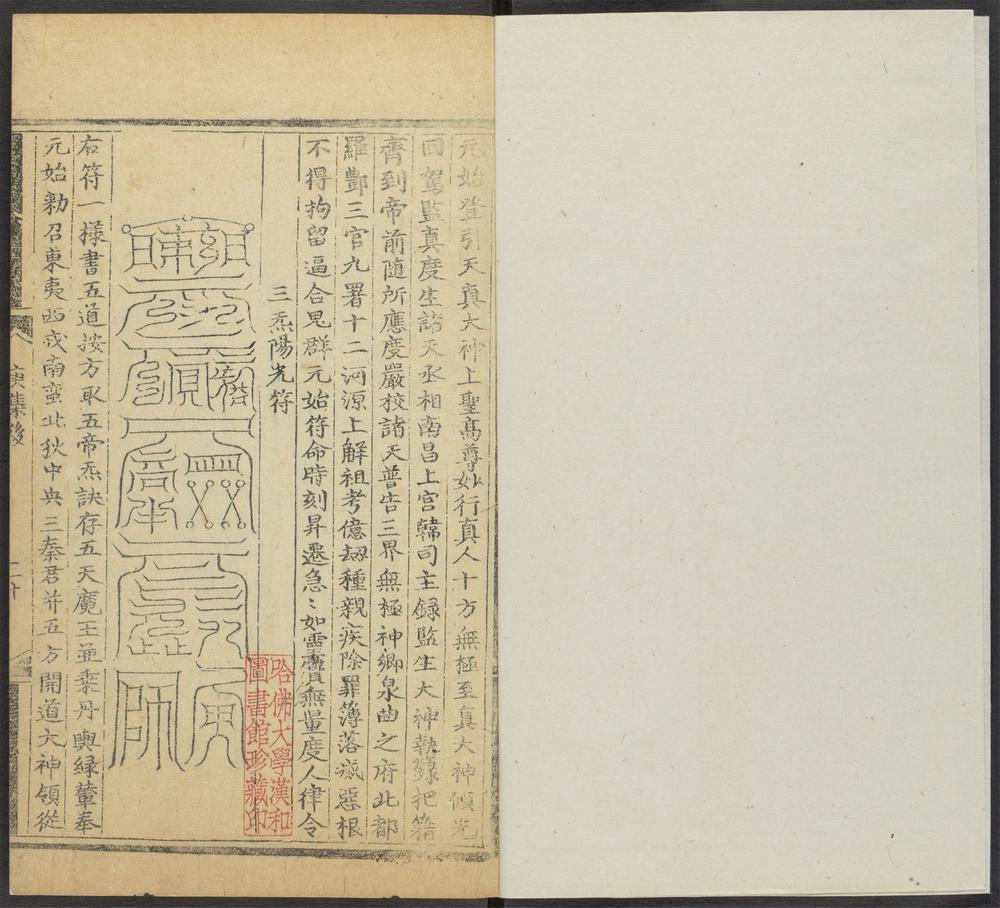 元始登引天真大神上聖高尊妙行真人十方無極至真大神傾光
回駕監真度生諸天丞相南昌上宮韓司主錄監生大神執籙把籍
齊到帝前随所應度嚴校諸天普告三界無極神卿泉曲之府北都
羅酆三官九署十二河源上解祖考億劫種親疾除罪簿落滅惡根
不得拘留逼合鬼群元始符命時刻昇遷急〻如靈寶無量度人律令
三炁陽光符
右符一樣書五道按方取五帝炁訣存五天魔王並乘丹輿緑輦奉
元始勑召東夷西戎南蛮北狄中央三秦君并五方開道大神領從
庚集後
二十
哈佛大學漢和
圖書館珍藏印